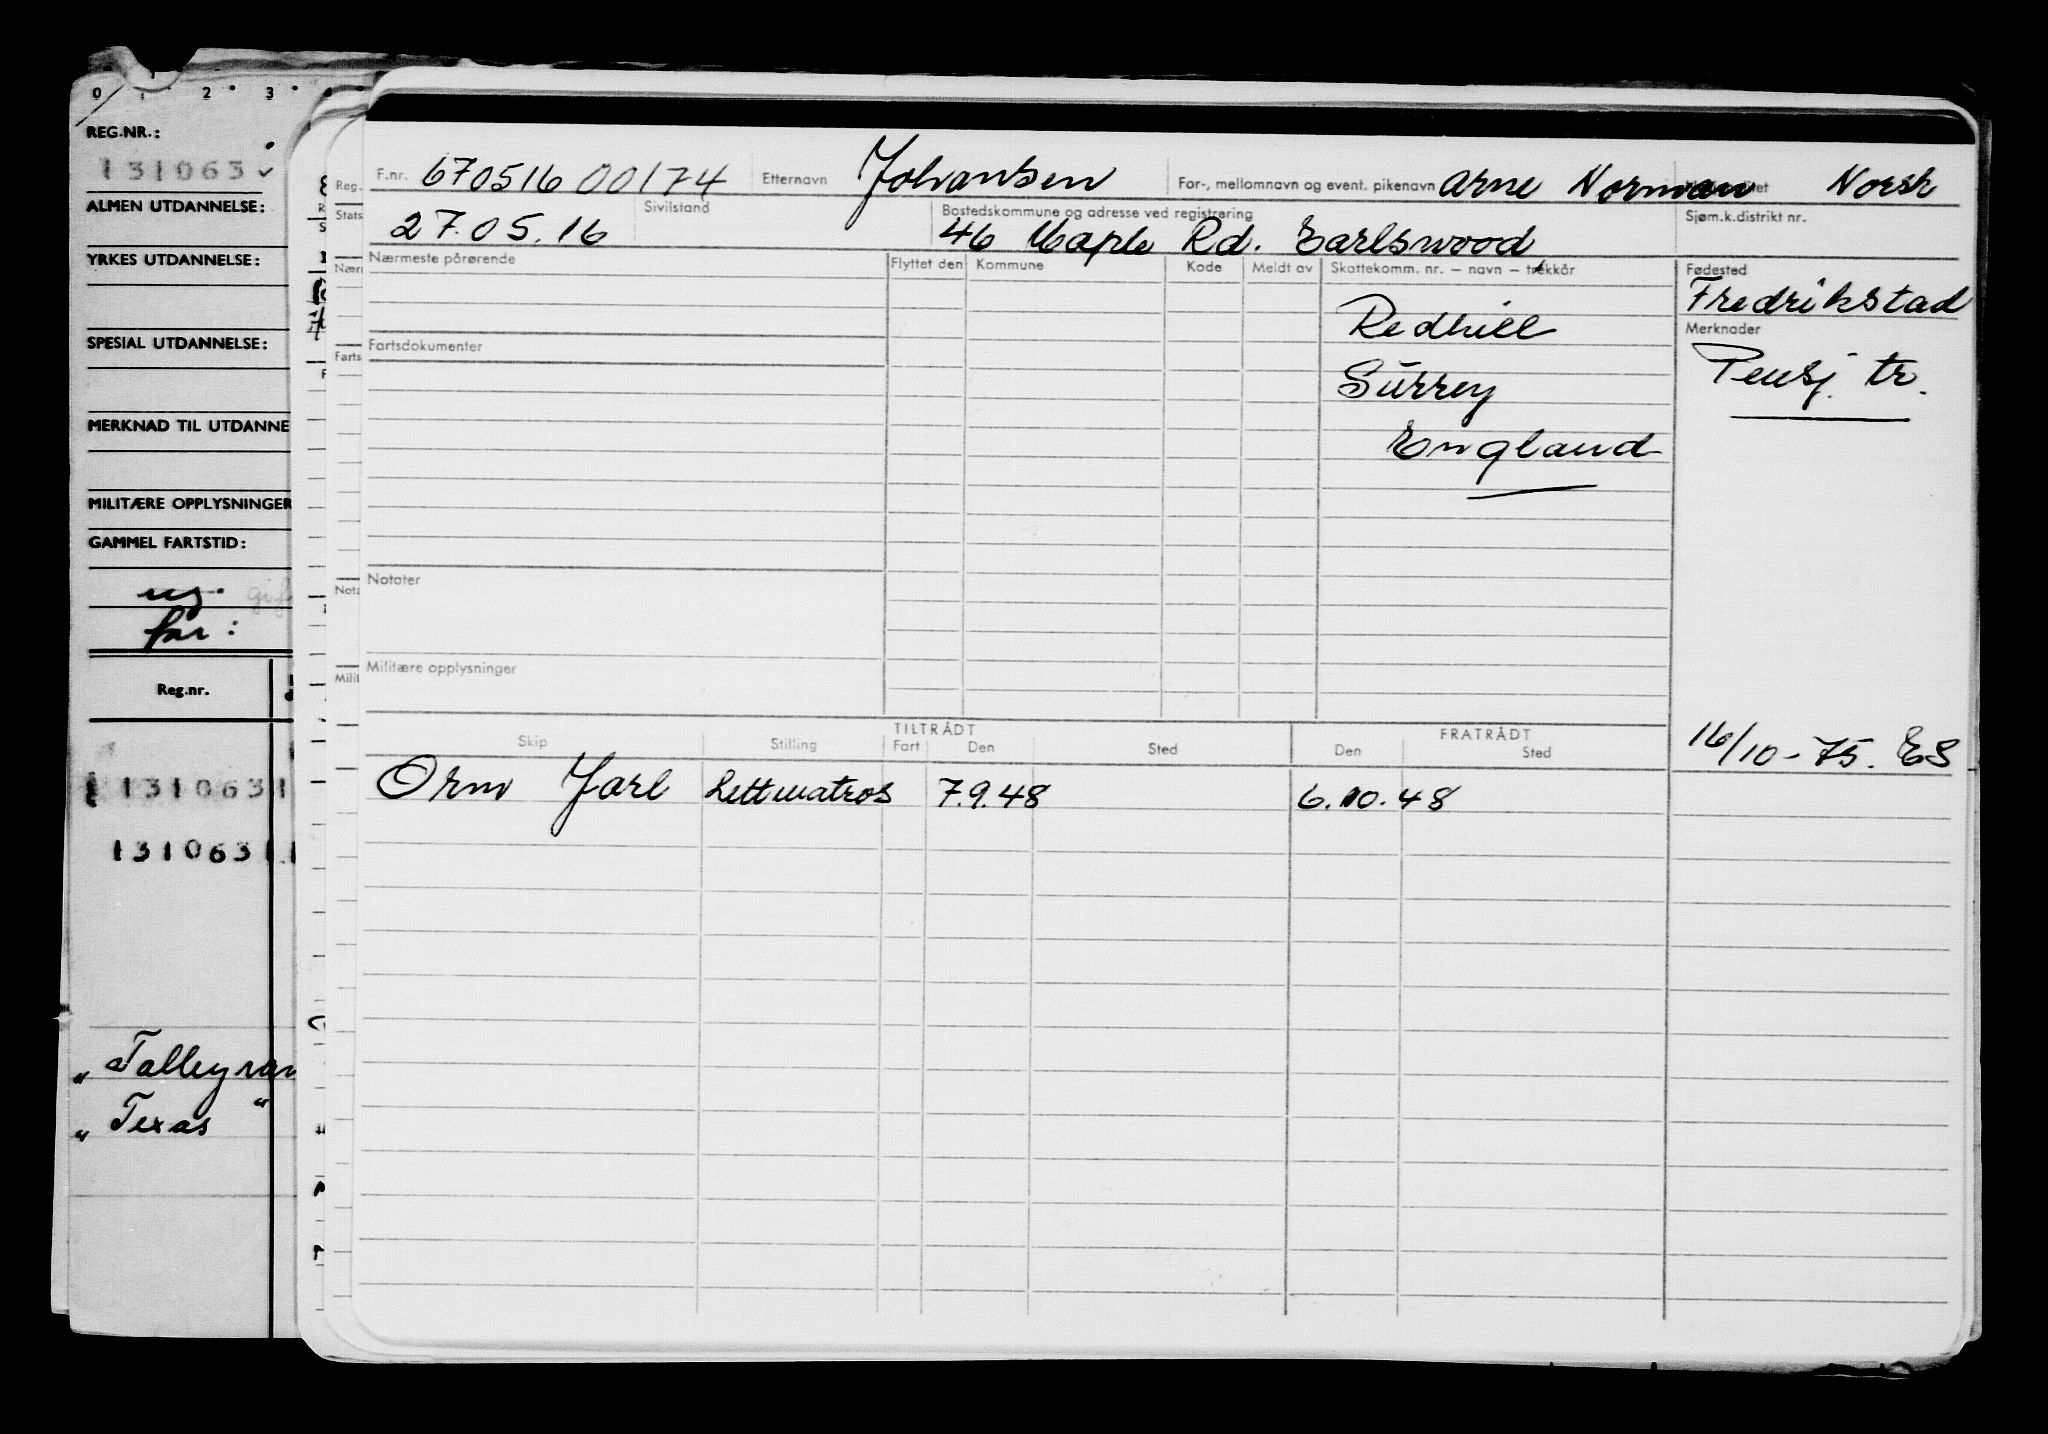 0 1 2 3
REG.NR.:
131063
ALMEN UTDANNELSE:
YRKES UTDANNELSE:
SPESIAL UTDANNELSE:
MERKNAD TIL UTDANNE
MILITÆRE OPPLYSNINGER
GAMMEL FARTSTID:
ug.
far:
Reg.nr.
131063
131063
„Talleyran
„Texas"
Reg.
Stats
Nær
Farts
Nota
Milit
F.nr. 670516 00174 Etternavn Johansen For-, mellomnavn og event. pikenavn Arne Norman Norsk
27.05.16 Sivilstand Bostedskommune og adresse ved registrering Sjøm.k.distrikt nr.
46 Maple Rd. Earlswood
Nærmeste pårørende Flyttet den Kommune Kode Meldt av Skattekomm. nr. – navn – trekkår Fødested
Fredrikstad
Redhill
Merknader
Fartsdokumenter
Surrey Pensj. tr.
England
Notater
Militære opplysninger
TILTRÅDT FRATRÅDT
Skip Stilling Fart Den Sted Den Sted
16/10-75. ES
Orm Jarl Lettmatros 7.9.48 6.10.48